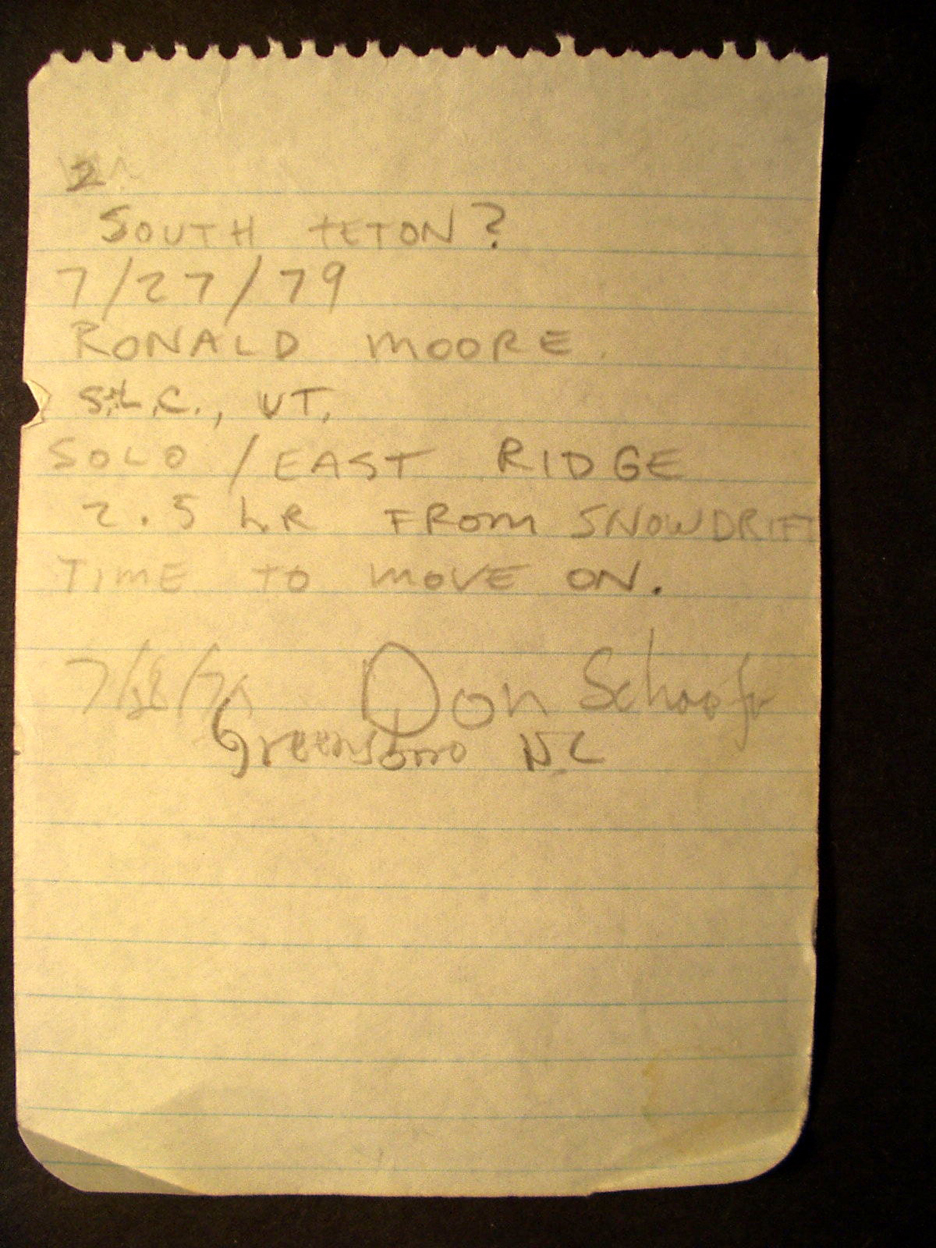 2
SOUTH TETON?
7/27/79
RONALD MOORE
S.L.C., UT.
SOLO / EAST RIDGE
2.5 hR FROM SNOWDRIFT
TIME TO MOVE ON.
Don
Greensboro NC